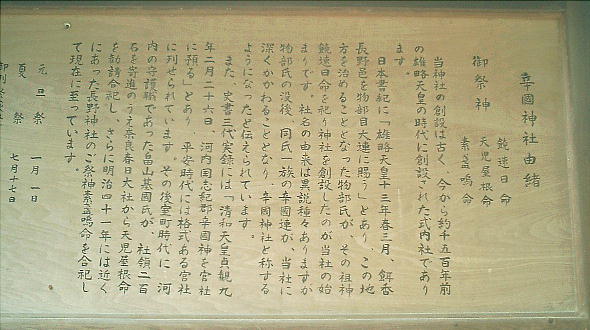 辛國神社由緒
御祭神
饒速日命
天児屋根命
素盞嗚命
当神社の創設は古く、今から約千五百年前
の雄略天皇の時代に創設された式内社であり
ます。
日本書紀に「雄略天皇十三年春三月、餌香
長野邑を物部目大連に賜う」とあり、この地
方を治めることとなった物部氏が、その祖神
饒速日命を祀り神社を創設したのが当社の始
まりです。社名の由来は異説種々ありますが
物部氏の没後、同氏一族の辛國連が、当社に
深くかかわることとなり、辛國神社と称する
ようになったと伝えられています。
また、史書三代実録には「清和天皇貞観九
年二月二十六日、河内国志紀郡辛國神を官社
に預る」とあり、平安時代には格式ある官社
に列せられています。その後室町時代に、河
内の守護職であった畠山基國氏が、社領二百
石を寄進のうえ奈良春日大社から天児屋根命
を勧請合祀し、さらに明治四十一年には近く
にあった長野神社のご祭神素盞嗚命を合祀し
て現在に至っています。
元旦祭 一月一日
夏祭 七月十七日